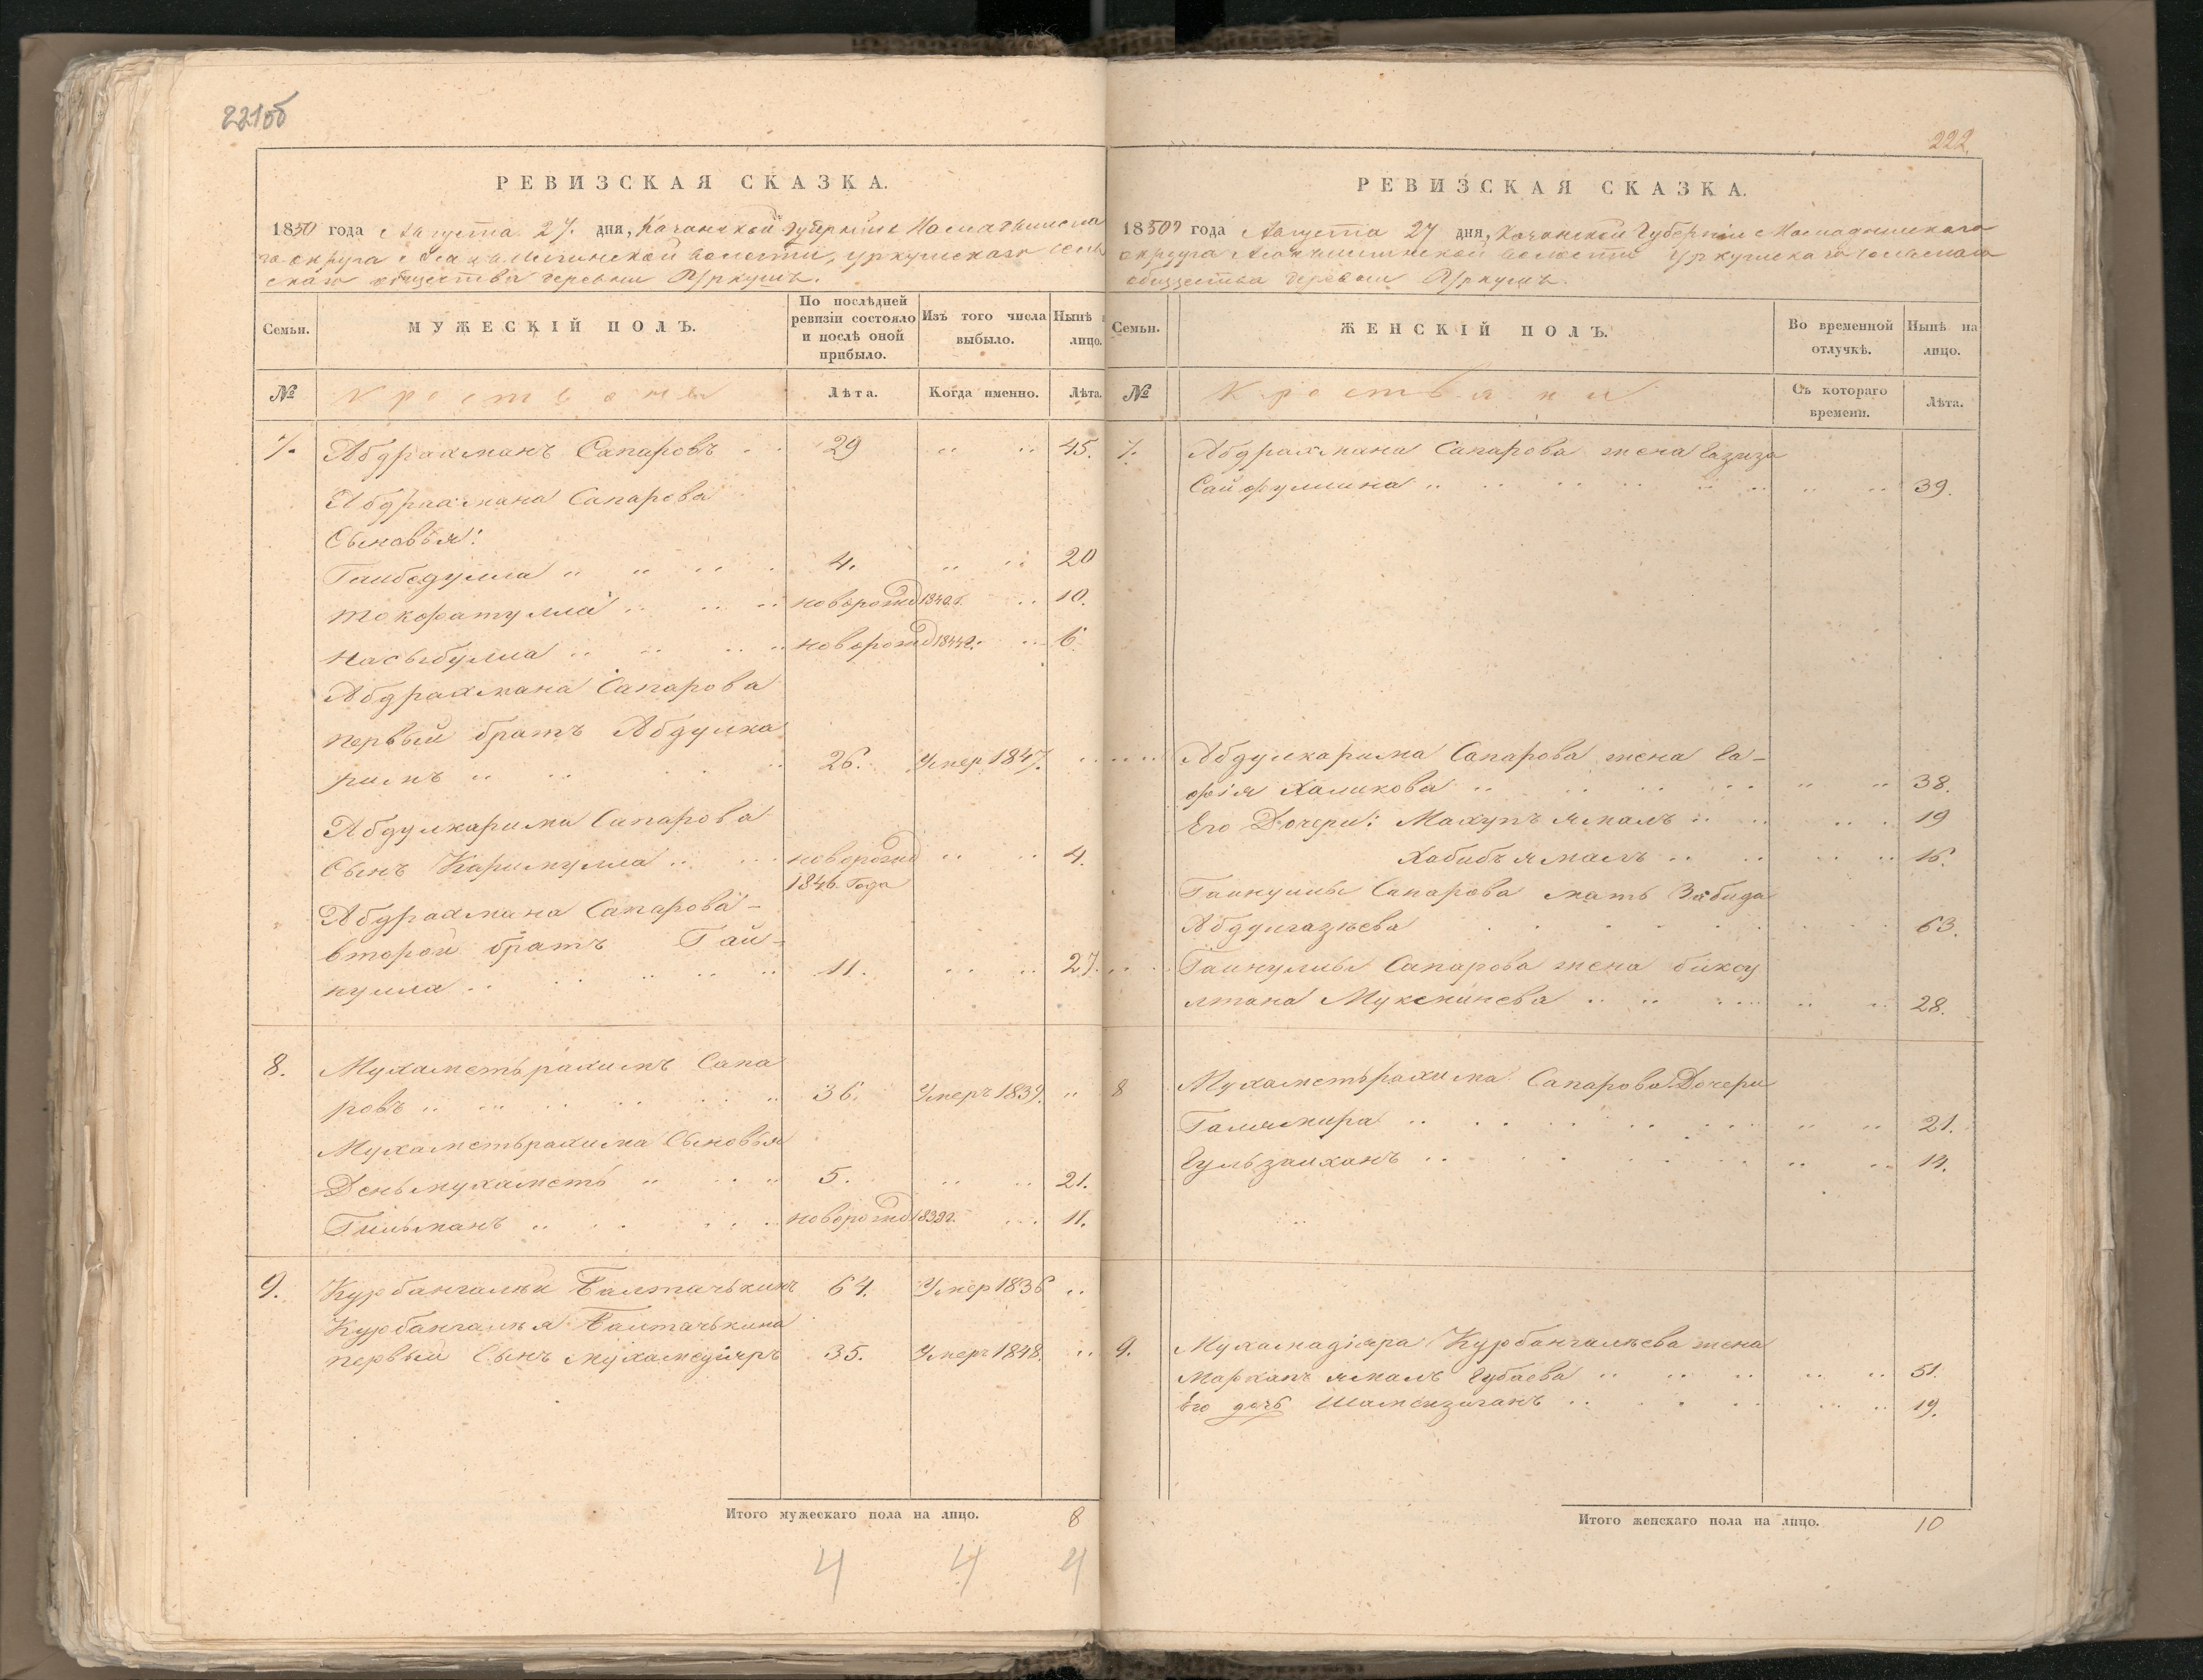 221об
РЕВИЗСКАЯ СКАЗКА.
1850 года Августа 27. дня, Казанской губерніи Мамадышска
го округа волости, Уркушскаго сель
скаго общества деревни Уркушъ.
Семьи.
МУЖЕСКІЙ ПОЛЪ.
По послѣдней ревизіи состояло и послѣ оной прибыло.
Изъ того числа выбыло.
Нынѣ лицо.
№ Крестьяне Лѣта. Когда именно. Лѣта.
7. Абдрахманъ Сапаровъ 29 45.
Абдрахмана Сапарова
Сыновья:
4. 20
новорожд 1840г. 10.
Насыбулла новорожд 1844г. 6
Абдрахмана Сапарова
первый братъ Абдулка
римъ 26. Умер 1847.
Абдулкарима Сапарова
Сынъ Каримулла новорожд 4.
1846 Года
Абдрахмана Сапарова
второй братъ Гай-
нулла 11. 27.
8. Мухаметьрахимъ Сапа
ровъ 36. Умеръ 1839.
Мухаметьрахима Сыновья
Деньмухаметь 5. 21.
Гильманъ новорожд 1839г. 11.
9. Курбангалѣй Балтачькинъ 64. Умер 1836
Курбангалѣя Балтачькина
первый Сынъ Мухамедіяръ 35. Умеръ 1848.
Итого мужескаго пола на лицо. 8
4 4 4
222.
РЕВИЗСКАЯ СКАЗКА.
1850 года Августа 27 дня, Казанской Губерніи Мамадышскаго
округа волости Уркушскаго сельскаго
общества деревни Уркушъ.
Семьи.
ЖЕНСКІЙ ПОЛЪ.
Во временной отлучкѣ.
Нынѣ на лицо.
№ Крестьянки Съ котораго времени. Лѣта.
7. Абдрахмана Сапарова жена Газиза
Сайфуллина 39.
Абдулкарима Сапарова жена Га-
фія Халикова 38.
Его Дочери: Махупъ ямалъ 19
Хабибъ ямалъ 16.
Гайнуллы Сапарова мать Забида
Абдулгазѣева 63.
Гайнуллы Сапарова жена биксу
лтана 28.
8 Мухаметьрахима Сапарова Дочери
Галямира 21.
Гульзайханъ 14.
9. Мухамадіяра Курбангалѣева жена
ямалъ Губаева 51.
Его дочь 19.
Итого женскаго пола на лицо. 10